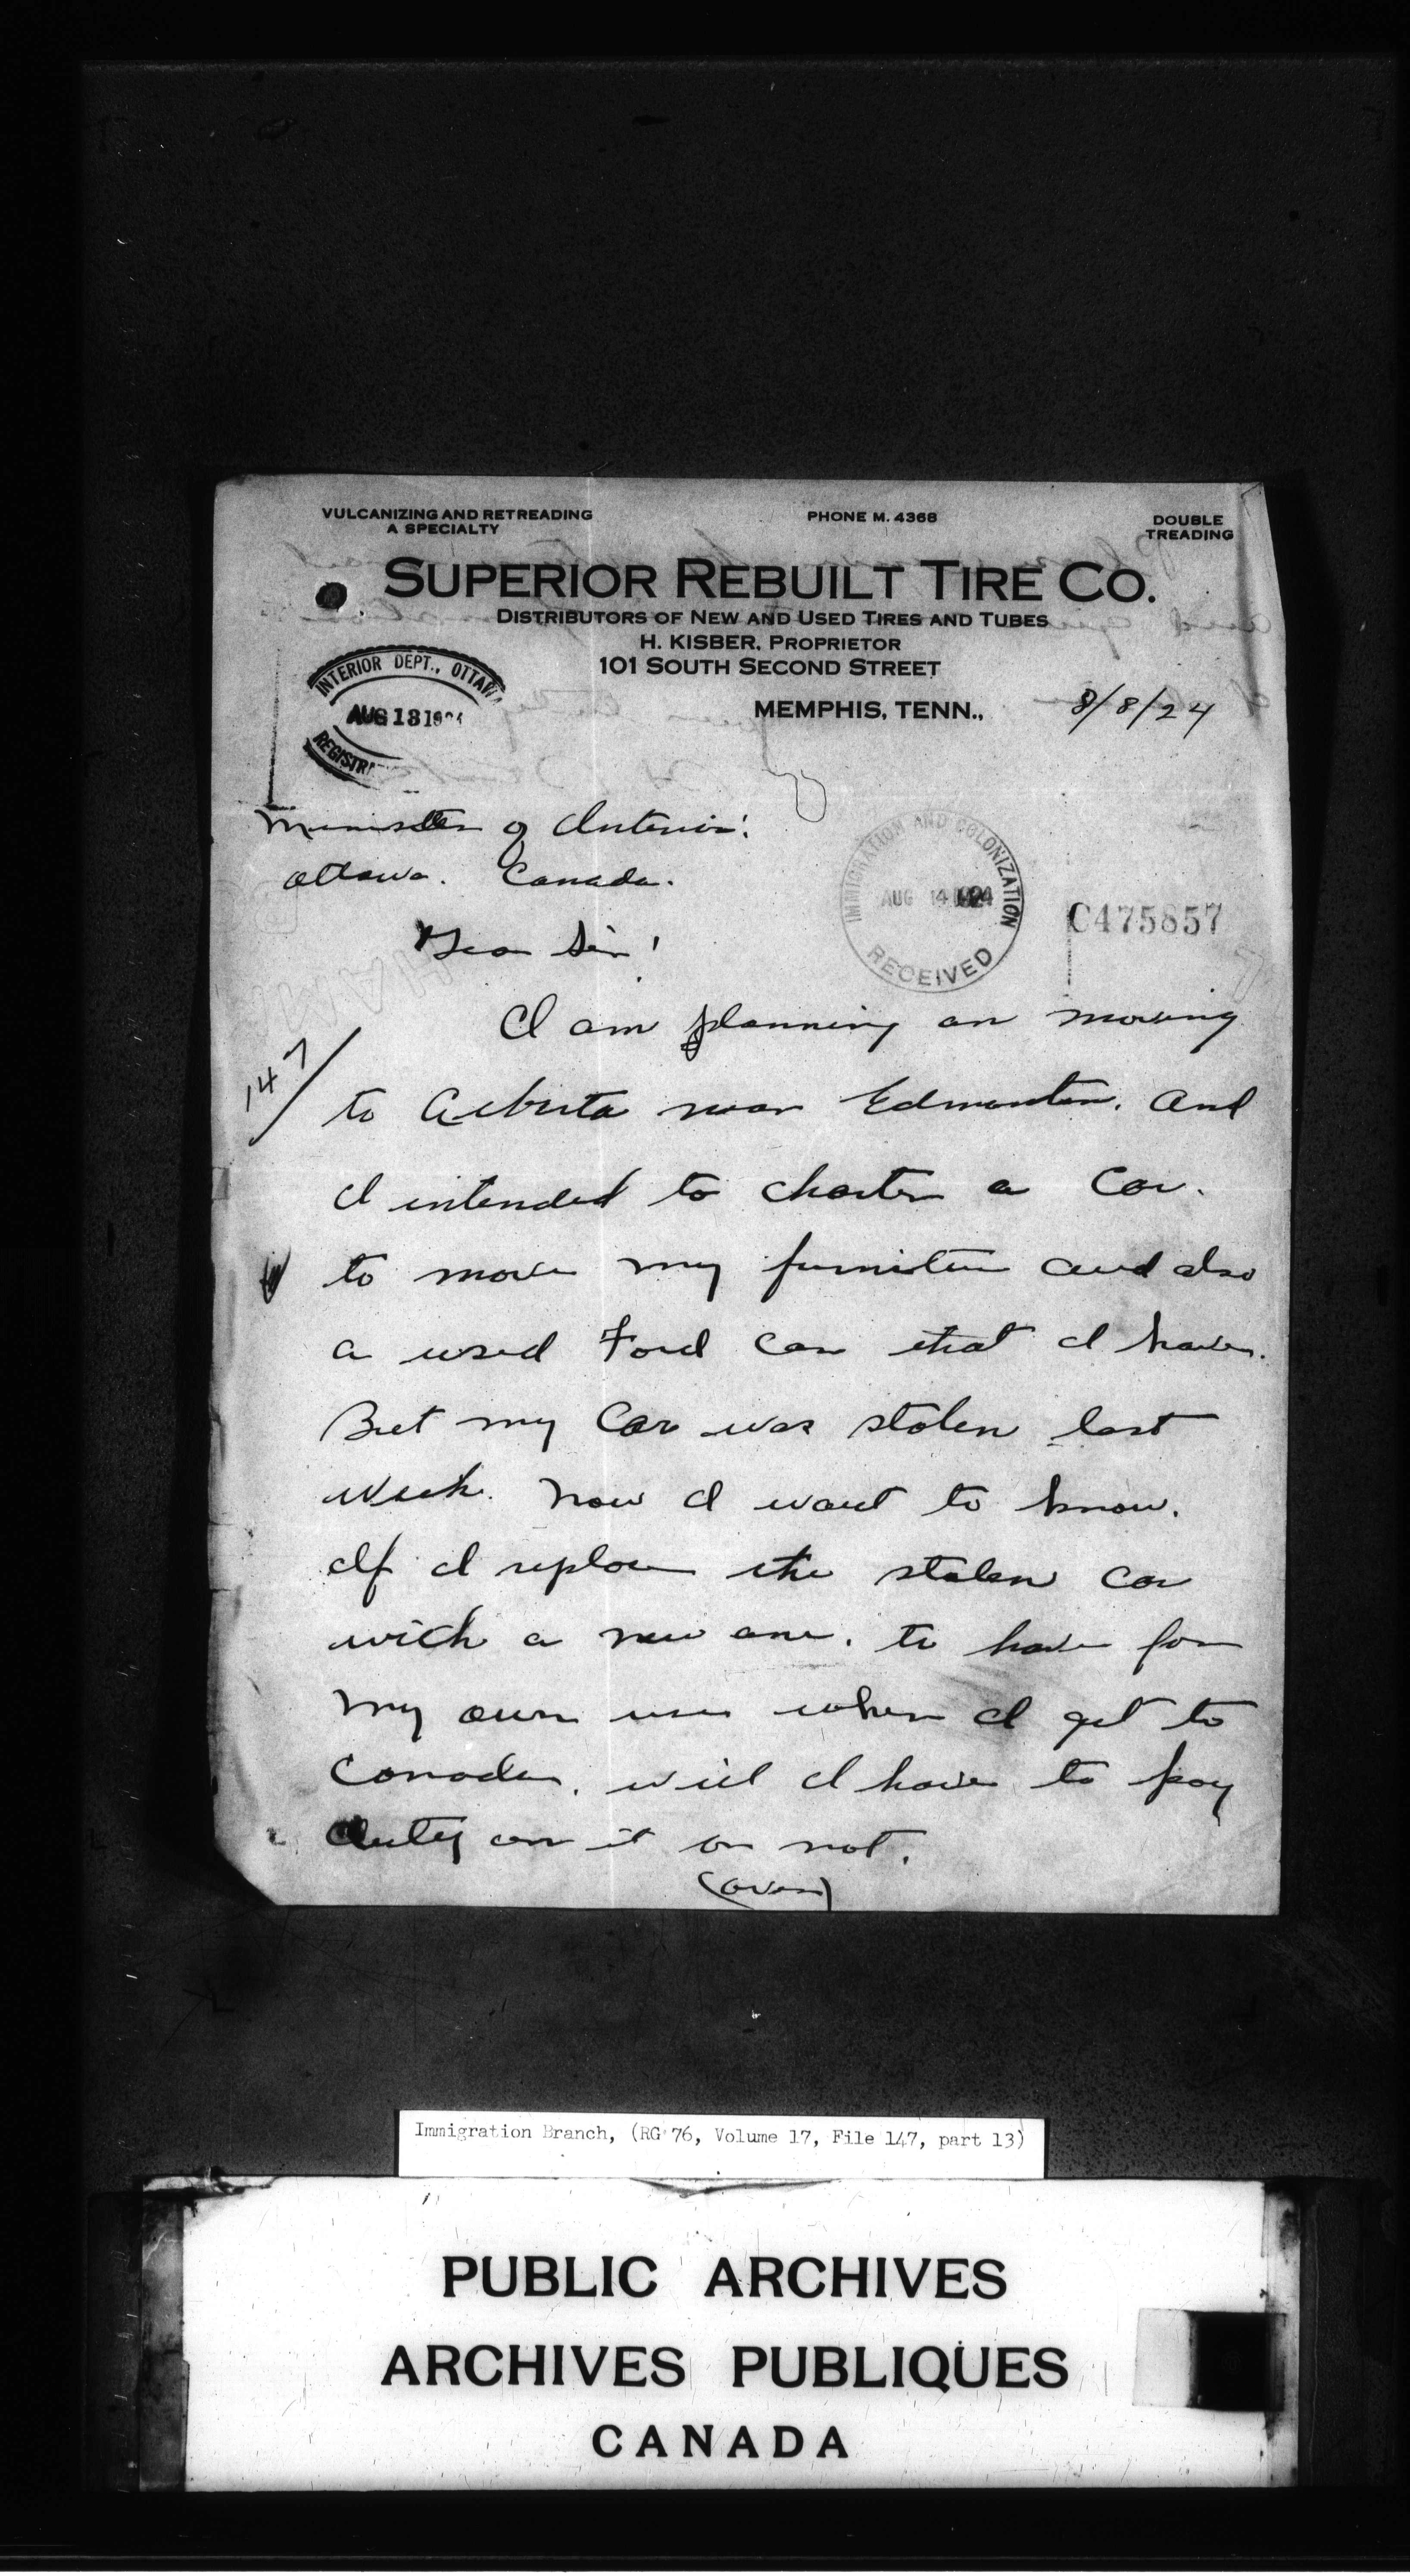 VULCANIZING AND RETREADING
A SPECIALTY
PHONE M. 4368
DOUBLE
TREADING
SUPERIOR REBUILT TIRE CO.
DISTRIBUTORS OF NEW AND USED TIRES AND TUBES
H. KISBER, PROPRIETOR
101 SOUTH SECOND STREET
MEMPHIS, TENN., 8/8/24
INTERIOR DEPT., OTTAWA
AUG 13 192
REGISTR
Minister of Interior:
Ottawa. Canada.
IMMIGRATION AND COLONIZATION
AUG 14 1924
RECEIVED
C475857
Dear Sir!
I am planning on moving
147
to Alberta near Edmonton. And
I intended to charter a Car.
to move my furniture and also
a used Ford car that I have.
But my Car was stolen last
week. Now I want to know.
If I replace the stolen car
with a new one. to have for
my own use when I get to
Canada. will I have to pay
duty on it or not.
(over)
Immigration Branch, (RG 76, Volume 17, File 147, part 13)
PUBLIC ARCHIVES
ARCHIVES PUBLIQUES
CANADA